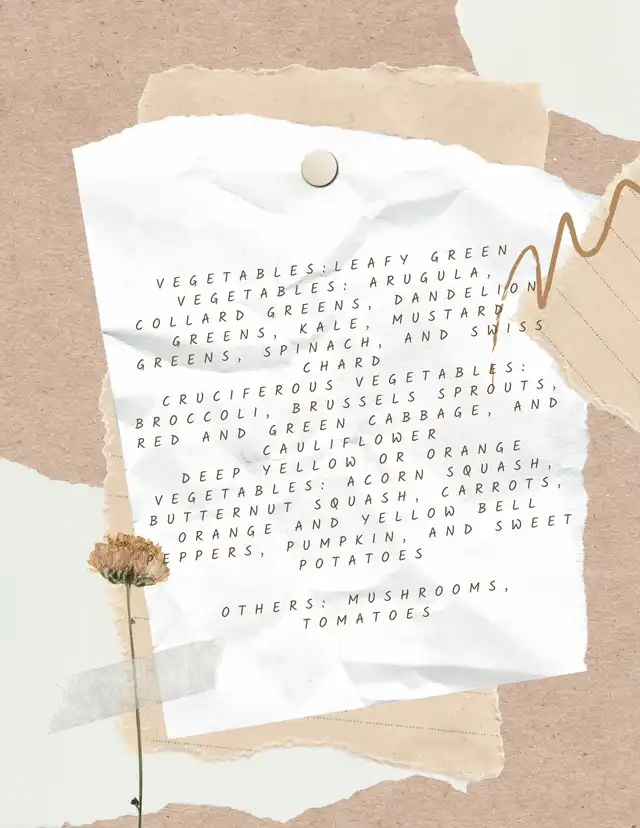 VEGETABLES:LEAFY GREEN
VEGETABLES: ARUGULA,
COLLARD GREENS, DANDELION
GREENS, KALE, MUSTARD
GREENS, SPINACH, AND SWISS
CHARD
CRUCIFEROUS VEGETABLES:
BROCCOLI, BRUSSELS SPROUTS,
RED AND GREEN CABBAGE, AND
CAULIFLOWER
DEEP YELLOW OR ORANGE
VEGETABLES: ACORN SQUASH,
BUTTERNUT SQUASH, CARROTS,
ORANGE AND YELLOW BELL
PEPPERS, PUMPKIN, AND SWEET
POTATOES
OTHERS: MUSHROOMS,
TOMATOES